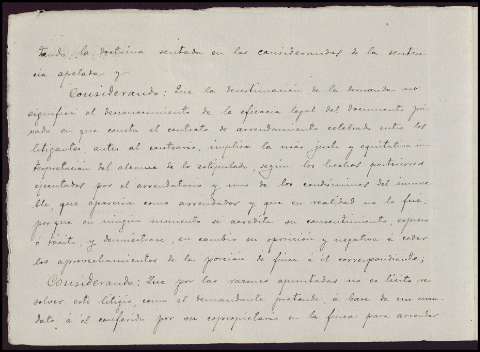 tando la doctrina sentada en los considerandos de la senten
cia apelada y
Considerando: Que la desestimación de la demanda no
significa el desconocimiento de la eficacia legal del documento pri
vado en que consta el contrato de arrendamiento celebrado entre los
litigantes, antes al contrario, implica la más justa y equitativa in
terpretación del alcance de lo estipulado, según los hechos posteriores
ejecutados por el arrendatario y uno de los condóminos del inmue
ble, que aparecía como arrendador y que en realidad no lo fue,
porque en ningún momento se acredita su consentimiento, expreso
o tácito, y demuéstrase, en cambio su oposición y negativa á ceder
los aprovechamientos de la porción de finca á él correspondiente;
Considerando: Que por las razones apuntadas no es lícito re
solver este litigio, como el demandante pretende, á base de un man
dato á él conferido por su copropietario en la finca para arrendar